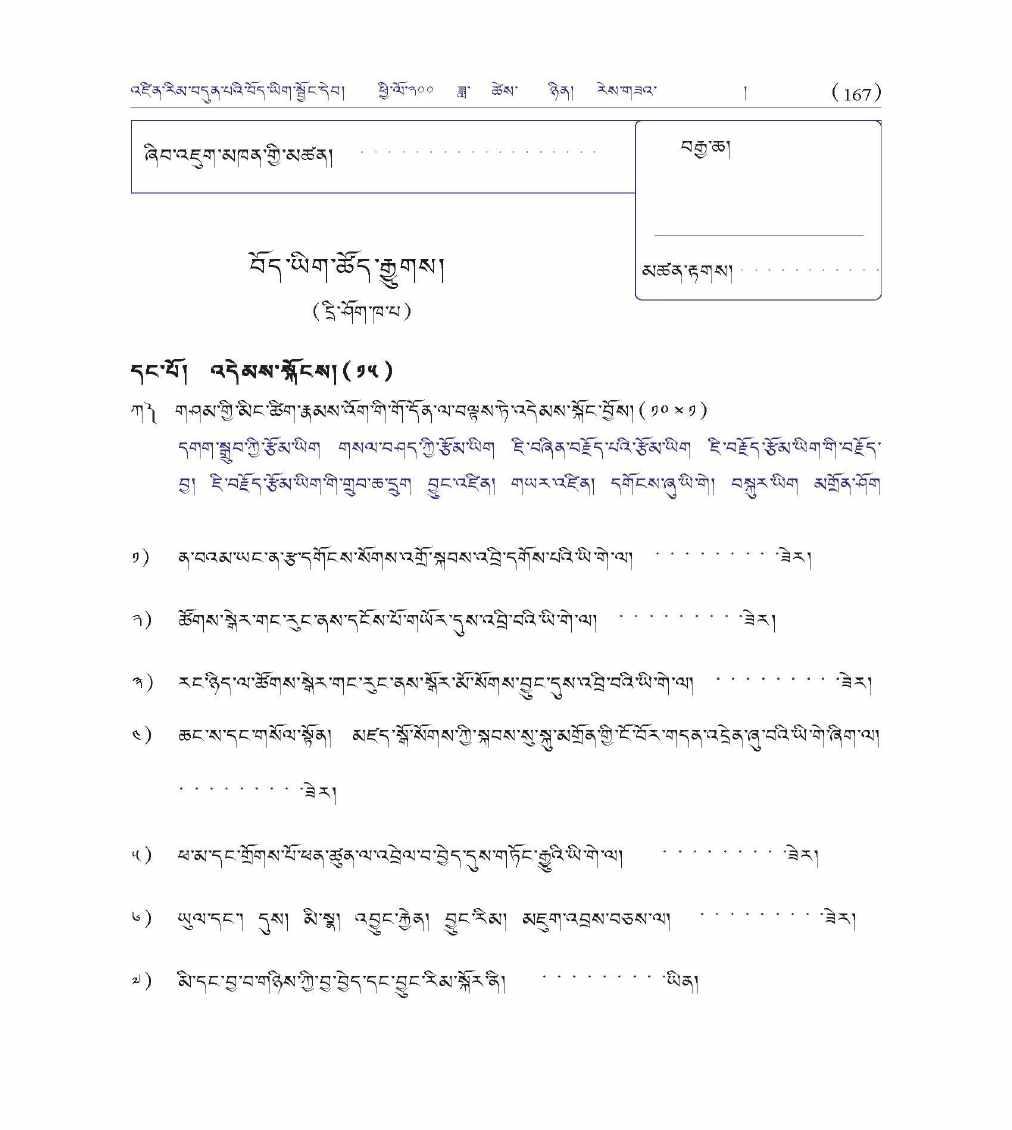 འཛིན་རིམ་བདུན་པའི་བོད་ཡིག་སྦྱོང་དེབ། ཕྱི་ལོ་༢༠༠ ཟླ་ ཚེས་ ཉིན། རེས་གཟའ་ ། (167)
ཞིབ་འཇུག་མཁན་གྱི་མཚན། · · · · · · · · · · · · · · · · · ·
བརྒྱ་ཆ།
བོད་ཡིག་ཚོད་རྒྱུགས།
མཚན་རྟགས། · · · · · · · · · · ·
(དྲི་ཤོག་ཁ་པ)
དང་པོ། འདེམས་སྐོངས། (༡༥)
ཀ༽ གཤམ་གྱི་མིང་ཚིག་རྣམས་འོག་གི་གོ་དོན་ལ་བལྟས་ཏེ་འདེམས་སྐོང་བྱོས། (༡༠×༡)
དགག་སྒྲུབ་ཀྱི་རྩོམ་ཡིག གསལ་བཤད་ཀྱི་རྩོམ་ཡིག ཇི་བཞིན་བརྗོད་པའི་རྩོམ་ཡིག ཇི་བརྗོད་རྩོམ་ཡིག་གི་བརྗོད་
བྱ། ཇི་བརྗོད་རྩོམ་ཡིག་གི་གྲུབ་ཆ་དྲུག བྱུང་འཛིན། གཡར་འཛིན། དགོངས་ཞུ་ཡི་གེ། བསྐུར་ཡིག མགྲོན་ཤོག
༡) ན་བའམ་ཡང་ན་རྩ་དགོངས་སོགས་འགྲོ་སྐབས་འབྲི་དགོས་པའི་ཡི་གེ་ལ། · · · · · · · · · ཟེར།
༢) ཚོགས་སྒེར་གང་རུང་ནས་དངོས་པོ་གཡོར་དུས་འབྲི་བའི་ཡི་གེ་ལ། · · · · · · · · · ཟེར།
༣) རང་ཉིད་ལ་ཚོགས་སྒེར་གང་རུང་ནས་སྒོར་མོ་སོགས་བྱུང་དུས་འབྲི་བའི་ཡི་གེ་ལ། · · · · · · · · · ཟེར།
༤) ཆང་ས་དང་གསོལ་སྟོན། མཛད་སྒོ་སོགས་ཀྱི་སྐབས་སུ་སྐུ་མགྲོན་གྱི་ངོ་བོར་གདན་འདྲེན་ཞུ་བའི་ཡི་གེ་ཞིག་ལ།
· · · · · · · · · ཟེར།
༥) ཕ་མ་དང་གྲོགས་པོ་ཕན་ཚུན་ལ་འབྲེལ་བ་བྱེད་དུས་གཏོང་རྒྱུའི་ཡི་གེ་ལ། · · · · · · · · · ཟེར།
༦) ཡུལ་དང་། དུས། མི་སྣ། འབྱུང་རྐྱེན། བྱུང་རིམ། མཇུག་འབྲས་བཅས་ལ། · · · · · · · · · ཟེར།
༧) མི་དང་བྱ་བ་གཉིས་ཀྱི་བྱ་བྱེད་དང་བྱུང་རིམ་སྐོར་ནི། · · · · · · · · · ཡིན།